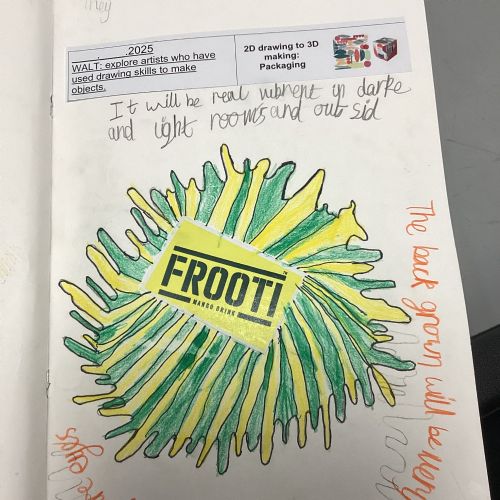 They
_____.2025
WALT: explore artists who have
used drawing skills to make
objects.
2D drawing to 3D
making:
Packaging
It will be real vibrent in darke
and light rooms and out sid
FROOTI
MANGO DRINK
The back grown will be very
eyes